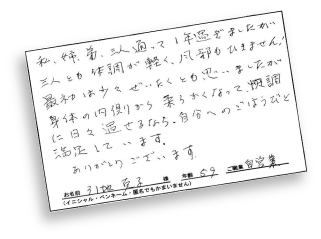 私、姉、弟、三人通って1年過ぎましたが
三人とも体調が軽く、風邪もひきません!
最初は少々ぜいたくとも思いましたが
身体の内側から柔らかくなって、順調
に日々過せるなら、自分へのごほうびと
満足しています。
ありがとうございます。
お名前 引地 様 年齢 59 ご職業 自営業
(イニシャル・ペンネーム・匿名でもかまいません)